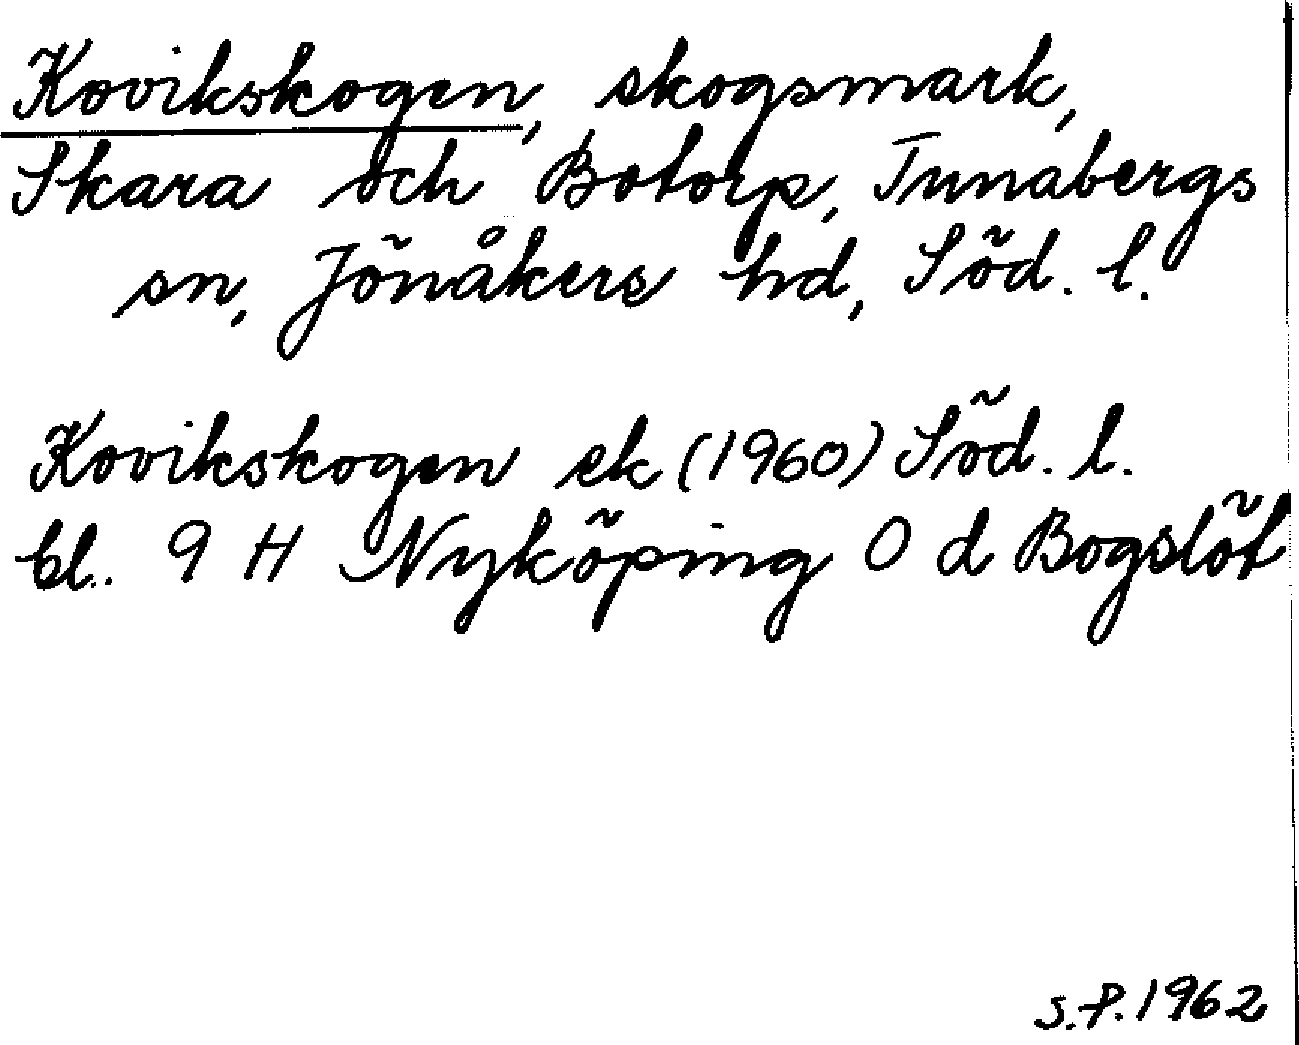 Kovikskogen, skogsmark,
Skara och Botorp, Tunabergs
sn, Jönåkers hd, Söd. l.
Kovikskogen ek (1960) Söd. l.
bl. 9 H Nyköping O d Bogslöt
S.P. 1962